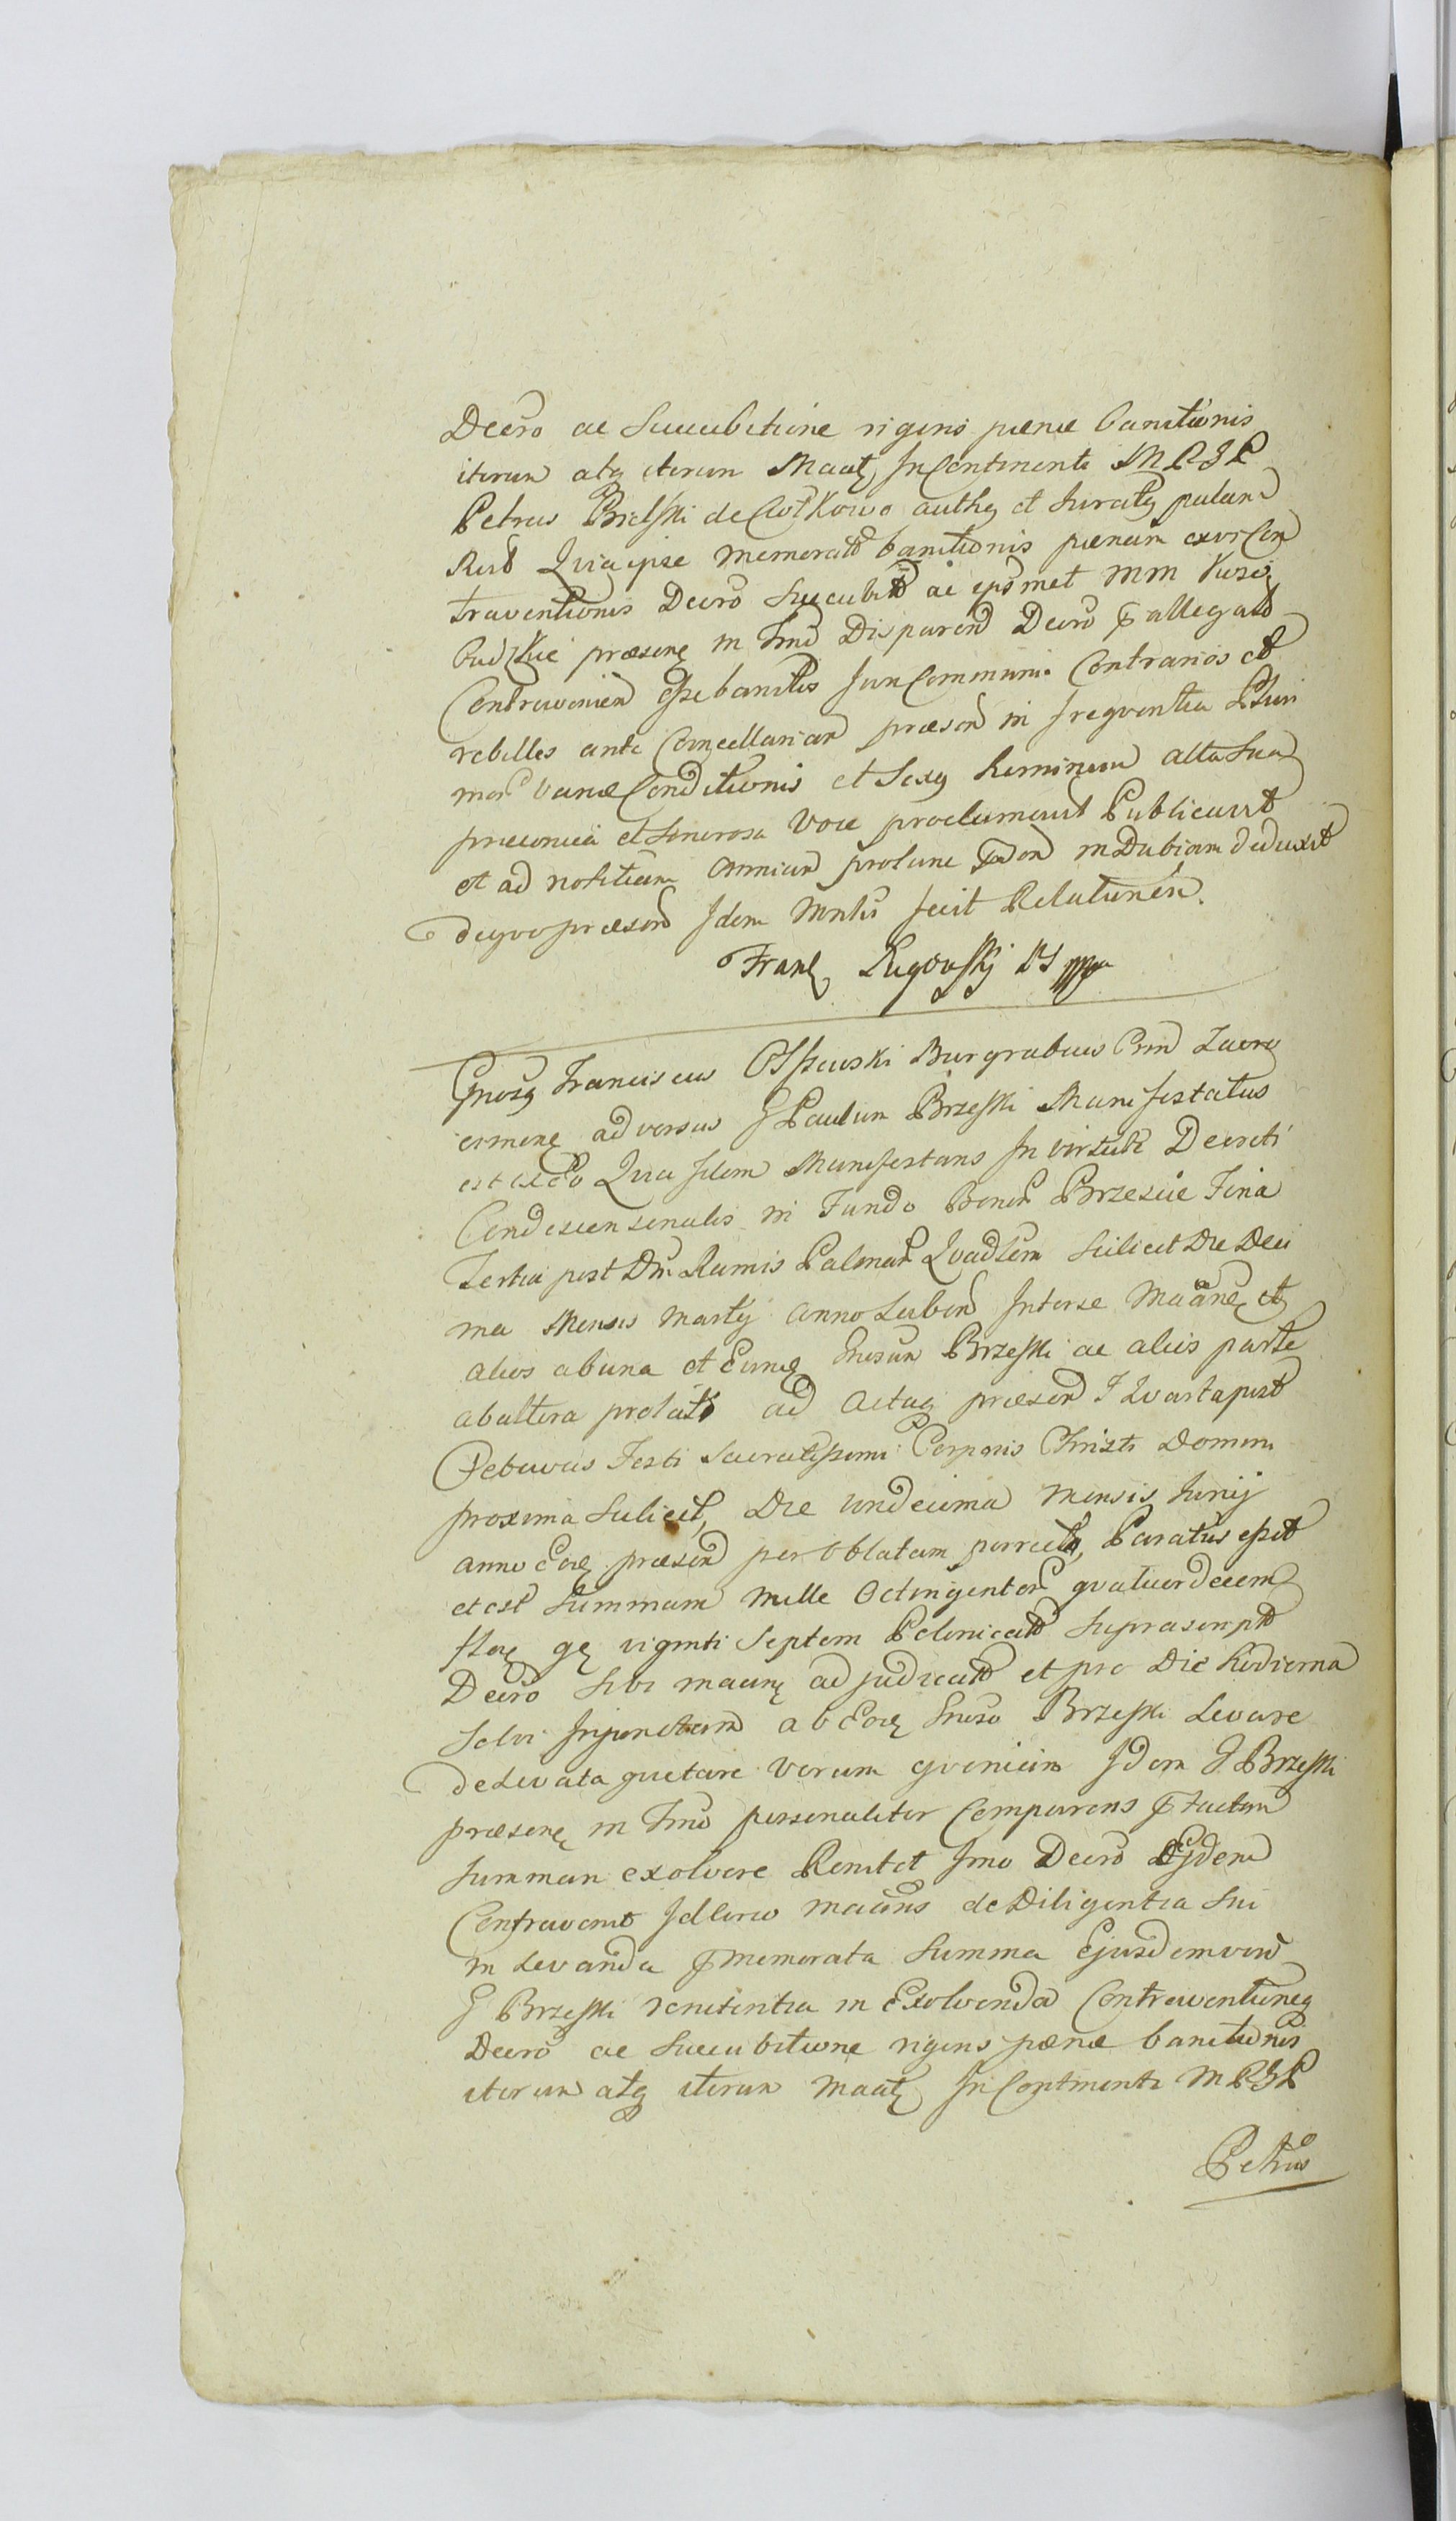 Decro ac Succubitione rigoris pænæ banitionis
iterum atq iterum Maatg InContinenti M R I P
Petrus Bielski de Cotkowo authq et Juratq palam
Quia ipse memorato banitionis pænam exvi Con
traventionis Decro Succubit ac ipsmet mm
præsent in Trno Disparend Decro pallegato
Contravenien esse banitos Jun Communi Contrarios et
rebelles ante Cancellariam præsen in freqventia Pluri
mor variæ Conditionis et Sexq hominum alta Sua
præconica et Sonorosa voce proclamavit Publicavit
et ad notitiam omnium protunc in Dubiam deduxit
deqvo præsen Idem Mnltr fecit Relationem.
Franc Rugowskj
Gnosq Franciscus Olszewski Burgrabius
adversus G Paulum Brzeski Manifestatus
est ex eo Quia Idem Manifestans In virtute Decreti
Condescensionalis in Fundo Bonor Brzescie Fina
Tertia post Dm Ramis Palmar Qvadlem Scilicet Die Deci
ma Mensis Martij Anno Labend Interse Maane et
alios abuna et Eunq Gnosum Brzeski ac alios parte
abaltera prolato ad Actaq præsen F Qvarta post
Octavas Festi Sacratissimi Corporis Christi Domini
proxima Scilicet, Die undecima Mensis Junij
anno Eoq præsen per oblatam porrecto, Paratus essed
et est Summam Mille Octingentor qvatuordecem
flor gr viginti Septem Polonicalo Suprascripto
Decro Sibi maane adjudicato et pro Die hodierna
Solvi Injunctam ab Eoq Gnoso Brzeski Levare
delevata qvietare verum qvoniam Idem G Brzeski
præsen in Trno personaliter Comparens ptactam
Summam exolvere Renitet Imo Decro Ejdem
Contravenit Idcirco maans de Diligentia Sui
in Levanda pmemorata Summa Ejusdemvero
G Brzeski renitentia in Exolvenda Contraventioneq
Decro ac Succubitione rigoris pænæ banitionis
iterum atq iterum Maatg InContinenti M R I P
Petrus